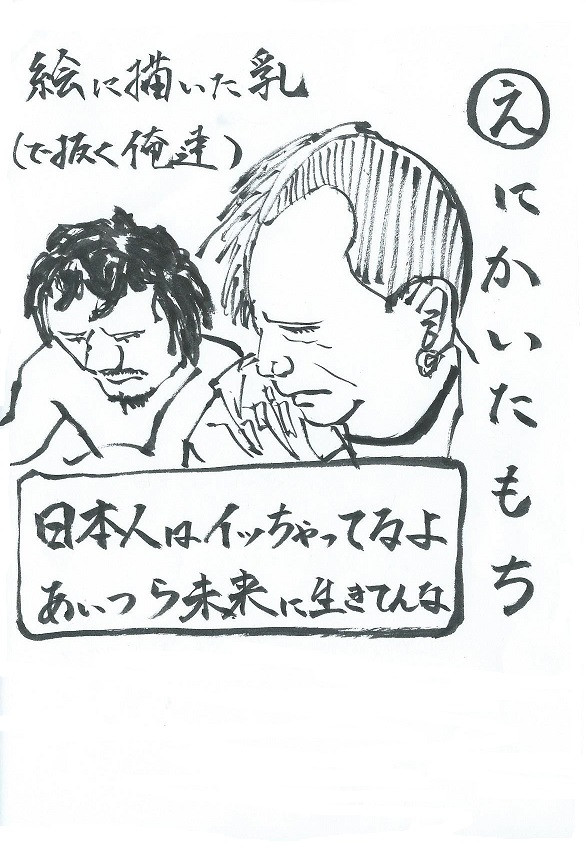 えにかいたもち
絵に描いた乳
(で抜く俺達)
日本人はイッちゃってるよ
あいつら未来に生きてんな